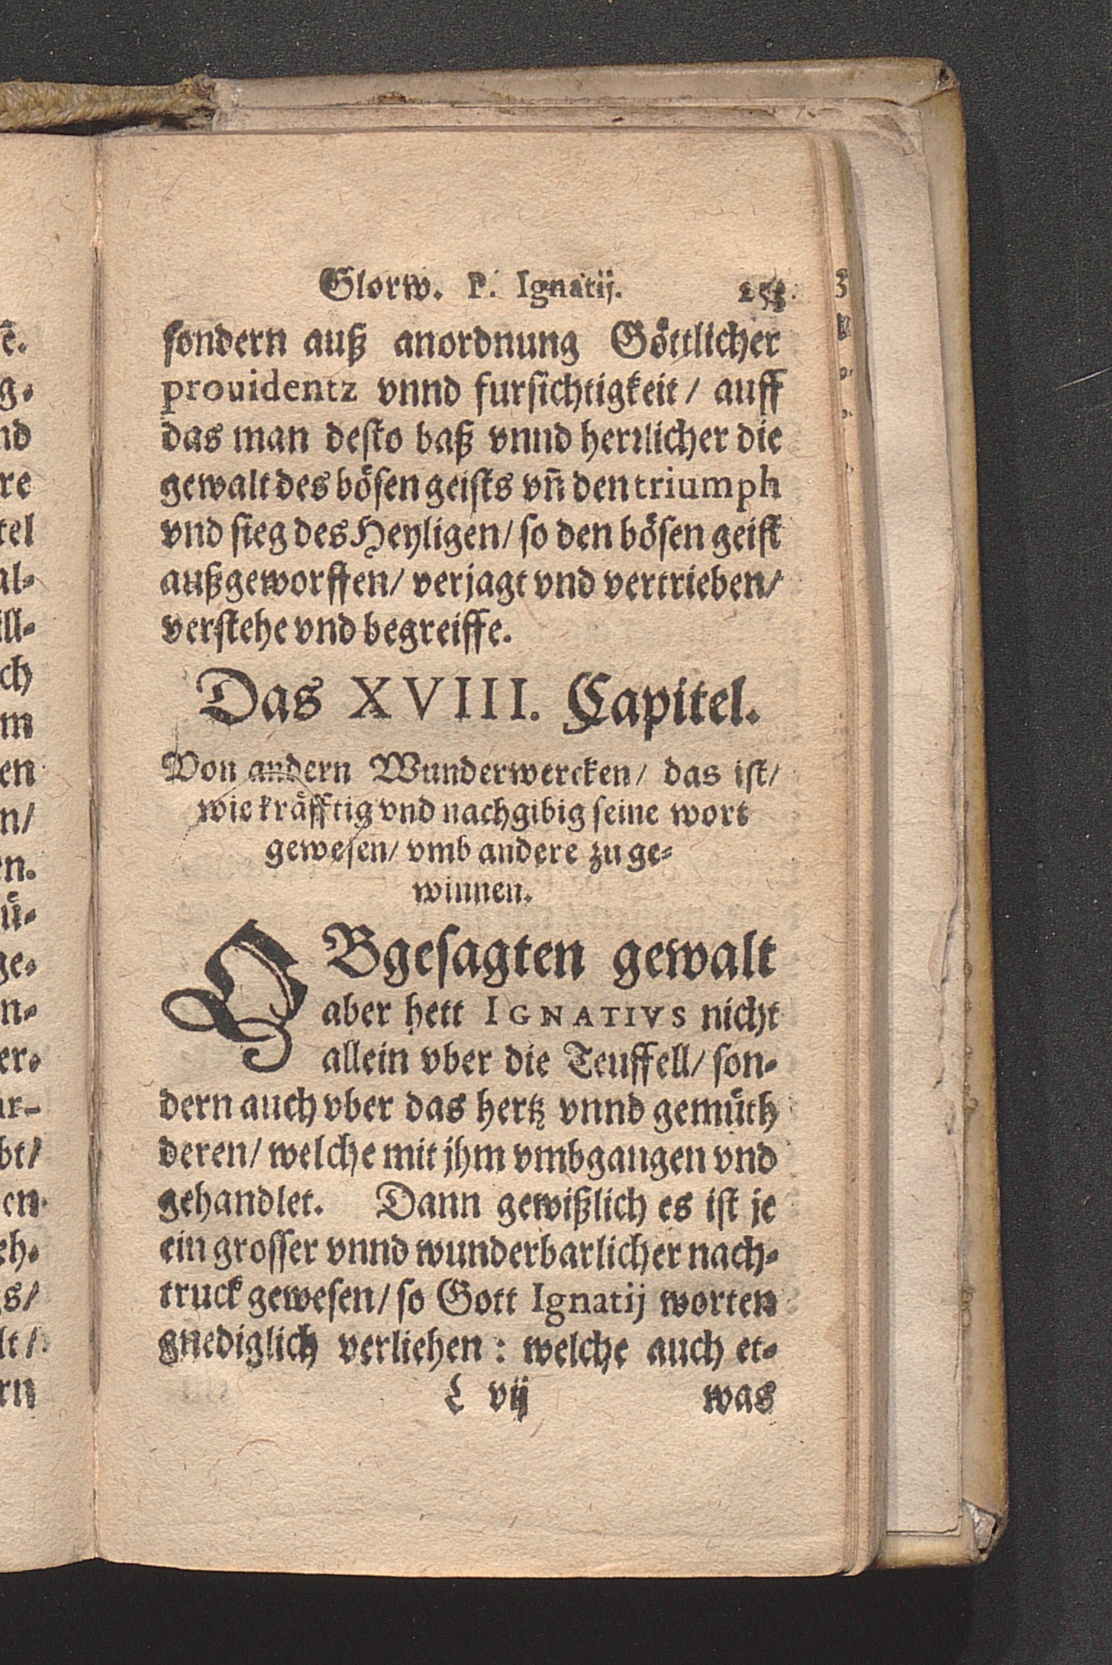 Glorw. P. Ignatij. 253.
sondern auß anordnung Göttlicher
prouidentz vnnd fursichtigkeit / auff
das man desto baß vnnd herrlicher die
gewalt des bösen geists vñ den triumph
vnd sieg des Heyligen / so den bösen geist
außgeworffen / verjagt vnd vertrieben /
verstehe vnd begreiffe.
Das XVIII. Capitel.
Von andern Wunderwercken / das ist /
wie kräfftig vnd nachgibig seine wort
gewesen / vmb andere zu ge-
winnen.
OBgesagten gewalt
aber hett IGNATIVS nicht
allein vber die Teuffell / son-
dern auch vber das hertz vnnd gemüth
deren / welche mit jhm vmbgangen vnd
gehandlet. Dann gewißlich es ist je
ein grosser vnnd wunderbarlicher nach-
truck gewesen / so Gott Ignatij worten
gnediglich verliehen : welche auch et-
L vij was